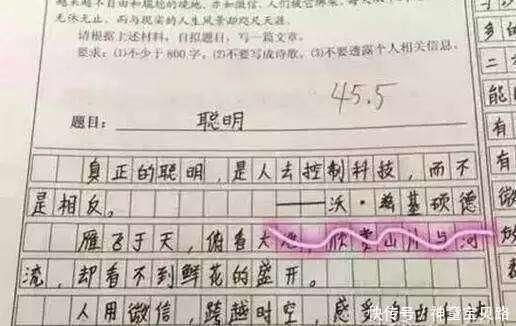 越来越不自由和尴尬的境地。亦如微信，人们被它绑架，
无休无止，而与现实的人生风景却咫尺天涯。
请根据上述材料，自拟题目，写一篇文章。
要求：(1)不少于800字。(2)不要写成诗歌。(3)不要透露个人相关信息。
45.5
题目： 聪明
真正的聪明，是人去控制科技，而不
是相反。 ——沃·希基顿德
雁飞于天，俯看大地，欣赏山川与河
流，却看不到鲜花的盛开。
人用微信，跨越时空，感受
乡
的
二
能
有
有
微
快传号/神童宝贝路